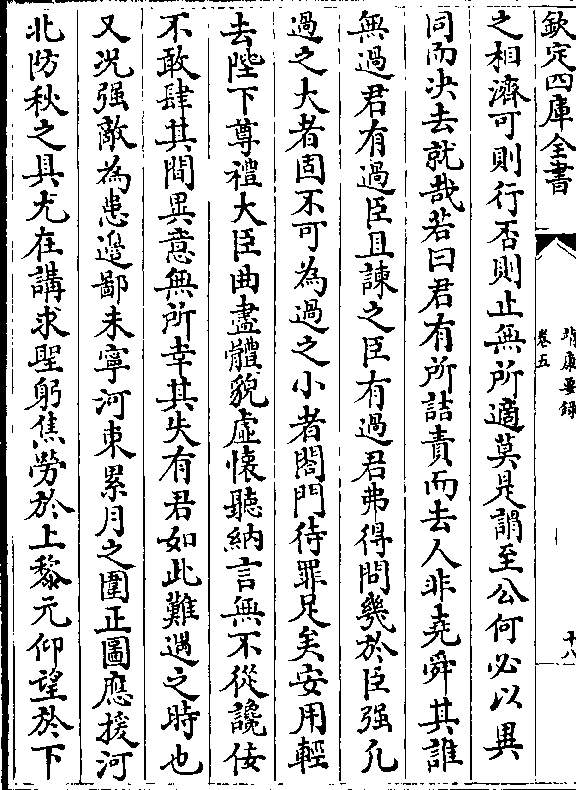 欽定四庫全書
靖康要錄
卷五
十八
之相濟可則行否則止無所適莫是謂至公何必以異
同而决去就哉若曰君有所詰責而去人非堯舜其誰
無過君有過臣且諫之臣有過君弗得問幾於臣强凡
過之大者固不可為過之小者閤門待罪足矣安用輕
去陛下尊禮大臣曲盡體貌虛懷聽納言無不從讒佞
不敢肆其間異意無所幸其失有君如此難遇之時也
又况强敵為患邉鄙未寧河東累月之圍正圖應援河
北防秋之具尤在講求聖躬焦勞於上黎元仰望於下